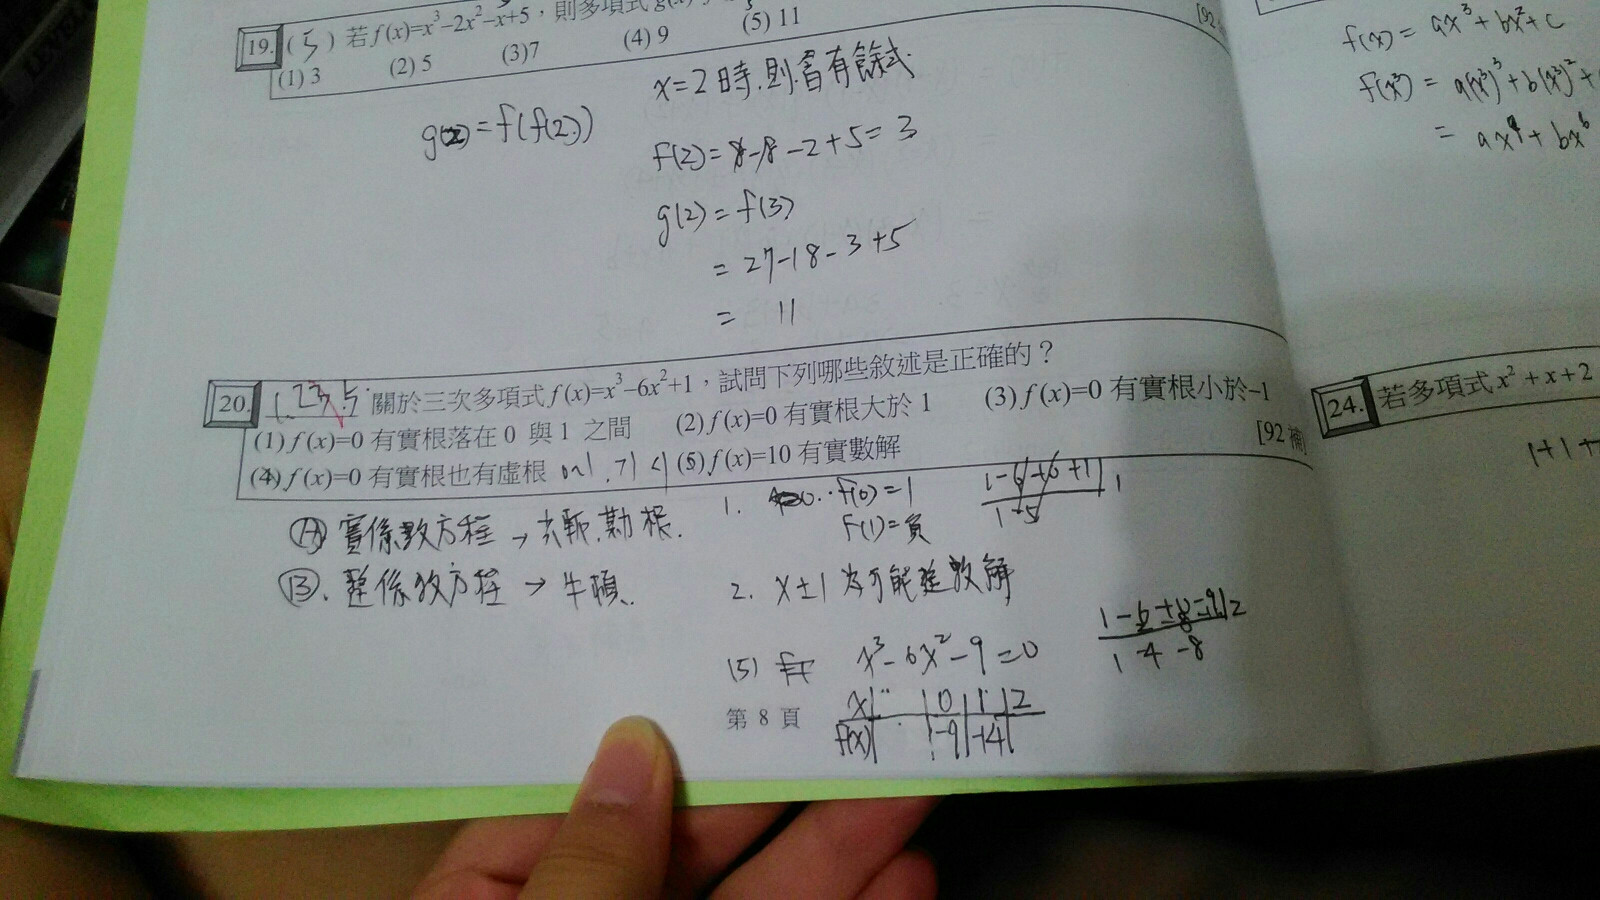 19. (5) 若 f(x)=x³−2x²−x+5，則多項式
(1) 3 (2) 5 (3) 7 (4) 9 (5) 11
[92
x=2時.則.會有餘式.
g(2)=f(f(2))
f(2)=8-8-2+5=3
g(2)=f(3)
=27-18-3+5
= 11
20. 1.23.5. 關於三次多項式 f(x)=x³−6x²+1，試問下列哪些敘述是正確的？
(1) f(x)=0 有實根落在 0 與 1 之間 (2) f(x)=0 有實根大於 1 (3) f(x)=0 有實根小於−1
(4) f(x)=0 有實根也有虛根 (5) f(x)=10 有實數解 [92 補]
A 實係數方程 → 勘根.
B. 整係數方程 → 牛頓.
1. f(0)=1
f(1)=負
1-6+0+1 | 1
1 -5
2. x±1 為可能整數解
(5) x³-6x²-9=0
1 -4 -8
x 0 1 2
f(x) -9 -14
第 8 頁
f(x) = ax³+bx²+c
f(x³) = a(x³)³+b(x³)²+
= ax⁹+bx⁶
24. 若多項式 x²+x+2
1+1+